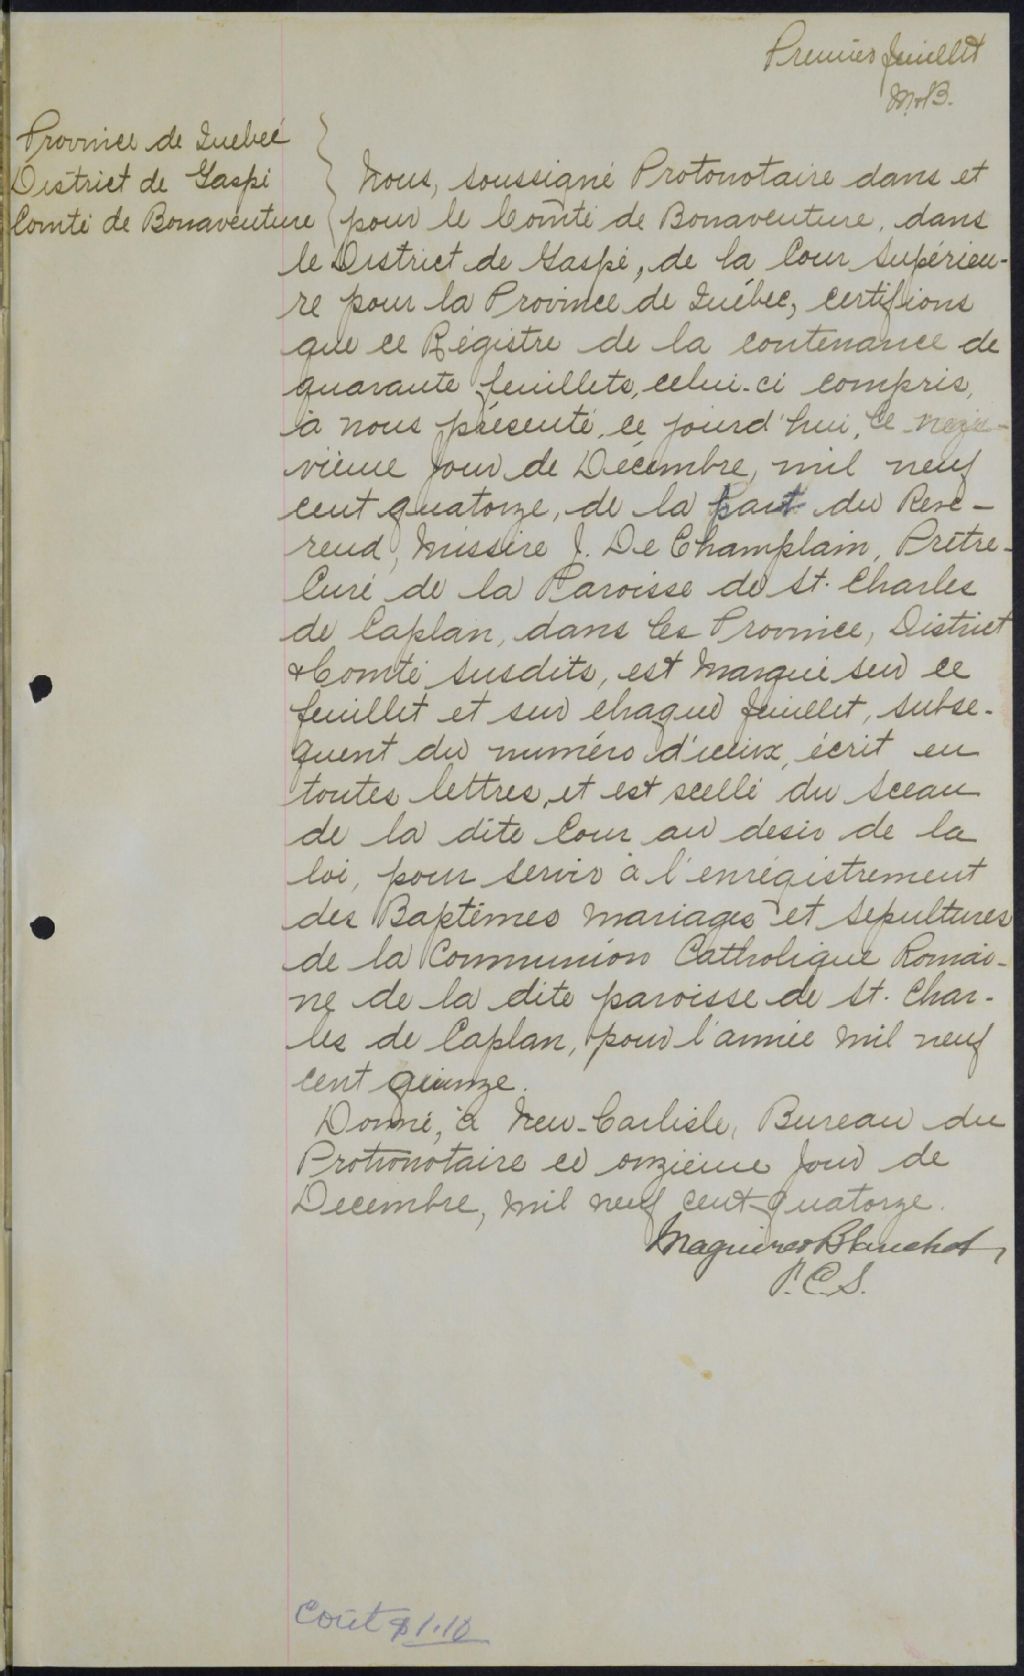 Premier feuillet
M&B.
Province de Quebec
District de Gaspé
Comté de Bonaventure
Nous, soussigné Protonotaire dans et
pour le Comté de Bonaventure, dans
le District de Gaspé, de la Cour Supérieu-
re pour la Province de Québec, certifions
que ce Régistre de la contenance de
quarante feuillets, celui-ci compris,
à nous présenté, ce jourd'hui, ce
vième jour de Décembre, mil neuf
cent quatorze, de la part du Reve-
rend, Missire J. De Champlain, Prêtre-
Curé de la Paroisse de St. Charles
de Caplan, dans les Province, District
& Comté susdits, est marqué sur ce
feuillet et sur chaque feuillet, subse-
quent du numéro d'iceux, écrit en
toutes lettres, et est scellé du Sceau
de la dite Cour au desir de la
loi, pour servir à l'enrégistrement
des Baptêmes Mariages et Sépultures
de la Communion Catholique Romai-
ne de la dite paroisse de St. Char-
les de Caplan, pour l'année mil neuf
cent quinze.
Donné, à New-Carlisle, Bureau du
Protonotaire ce onzième jour de
Decembre, mil neuf cent quatorze.
Maguire & Blanchet,
P.C.S.
Coût $1.10